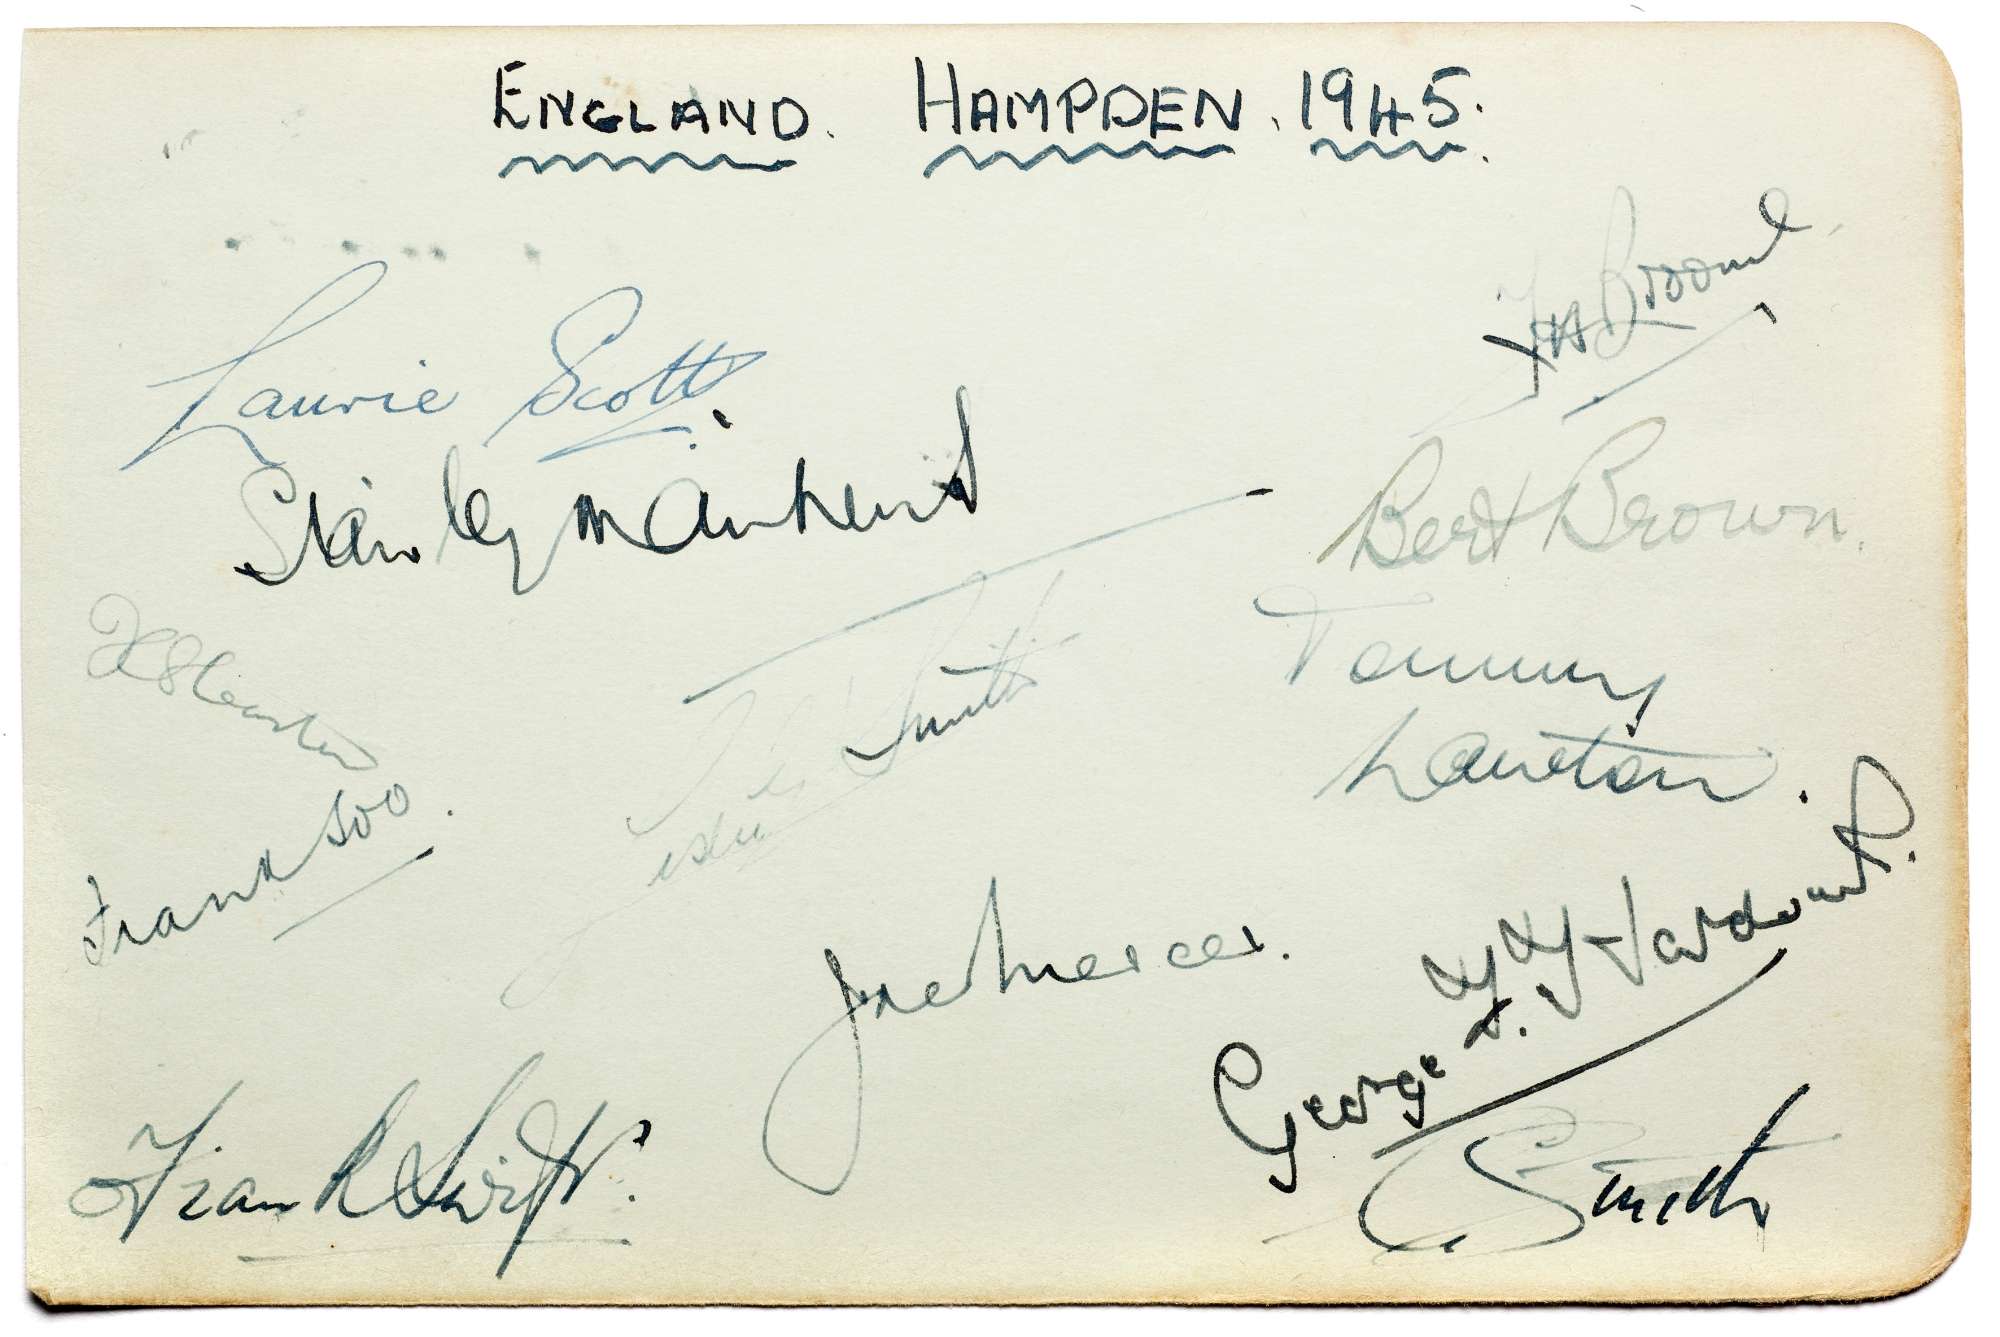 ENGLAND. HAMPDEN. 1945.
Laurie Scott
F H Broome
Stanley Matthews
Bert Brown.
Tommy
Lawton.
Leslie Smith
Frank Soo.
Joe Mercer.
George F. M. Hardwick.
Frank Swift.
L G Smith